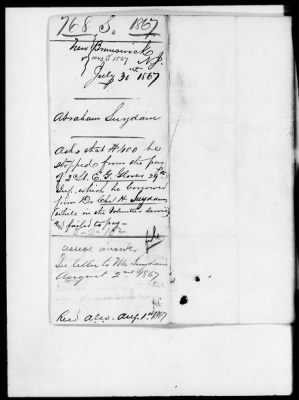 768. S. 1867
New Brunswick
N.J.
July 30th 1867
Abraham Suydam
Asks that $400 be
stopped from the pay
of 2d Lt. E. G. Glover 24th
Inf., which he borrowed
from Dr. Chas H. Suydam,
while in the Volunteer service
& failed to pay
file
See letter to Mr Suydam
August 2nd 1867
file
Rec'd A.G.O. Aug. 1st 1867